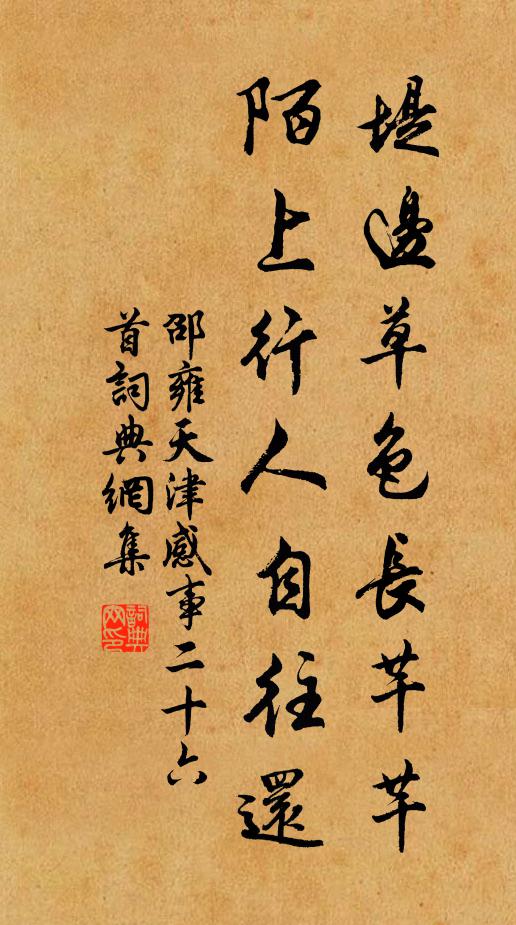 堤邊草色長芊芊
陌上行人自往還
邵雍天津感事二十六
首詞典網集
詞典網印